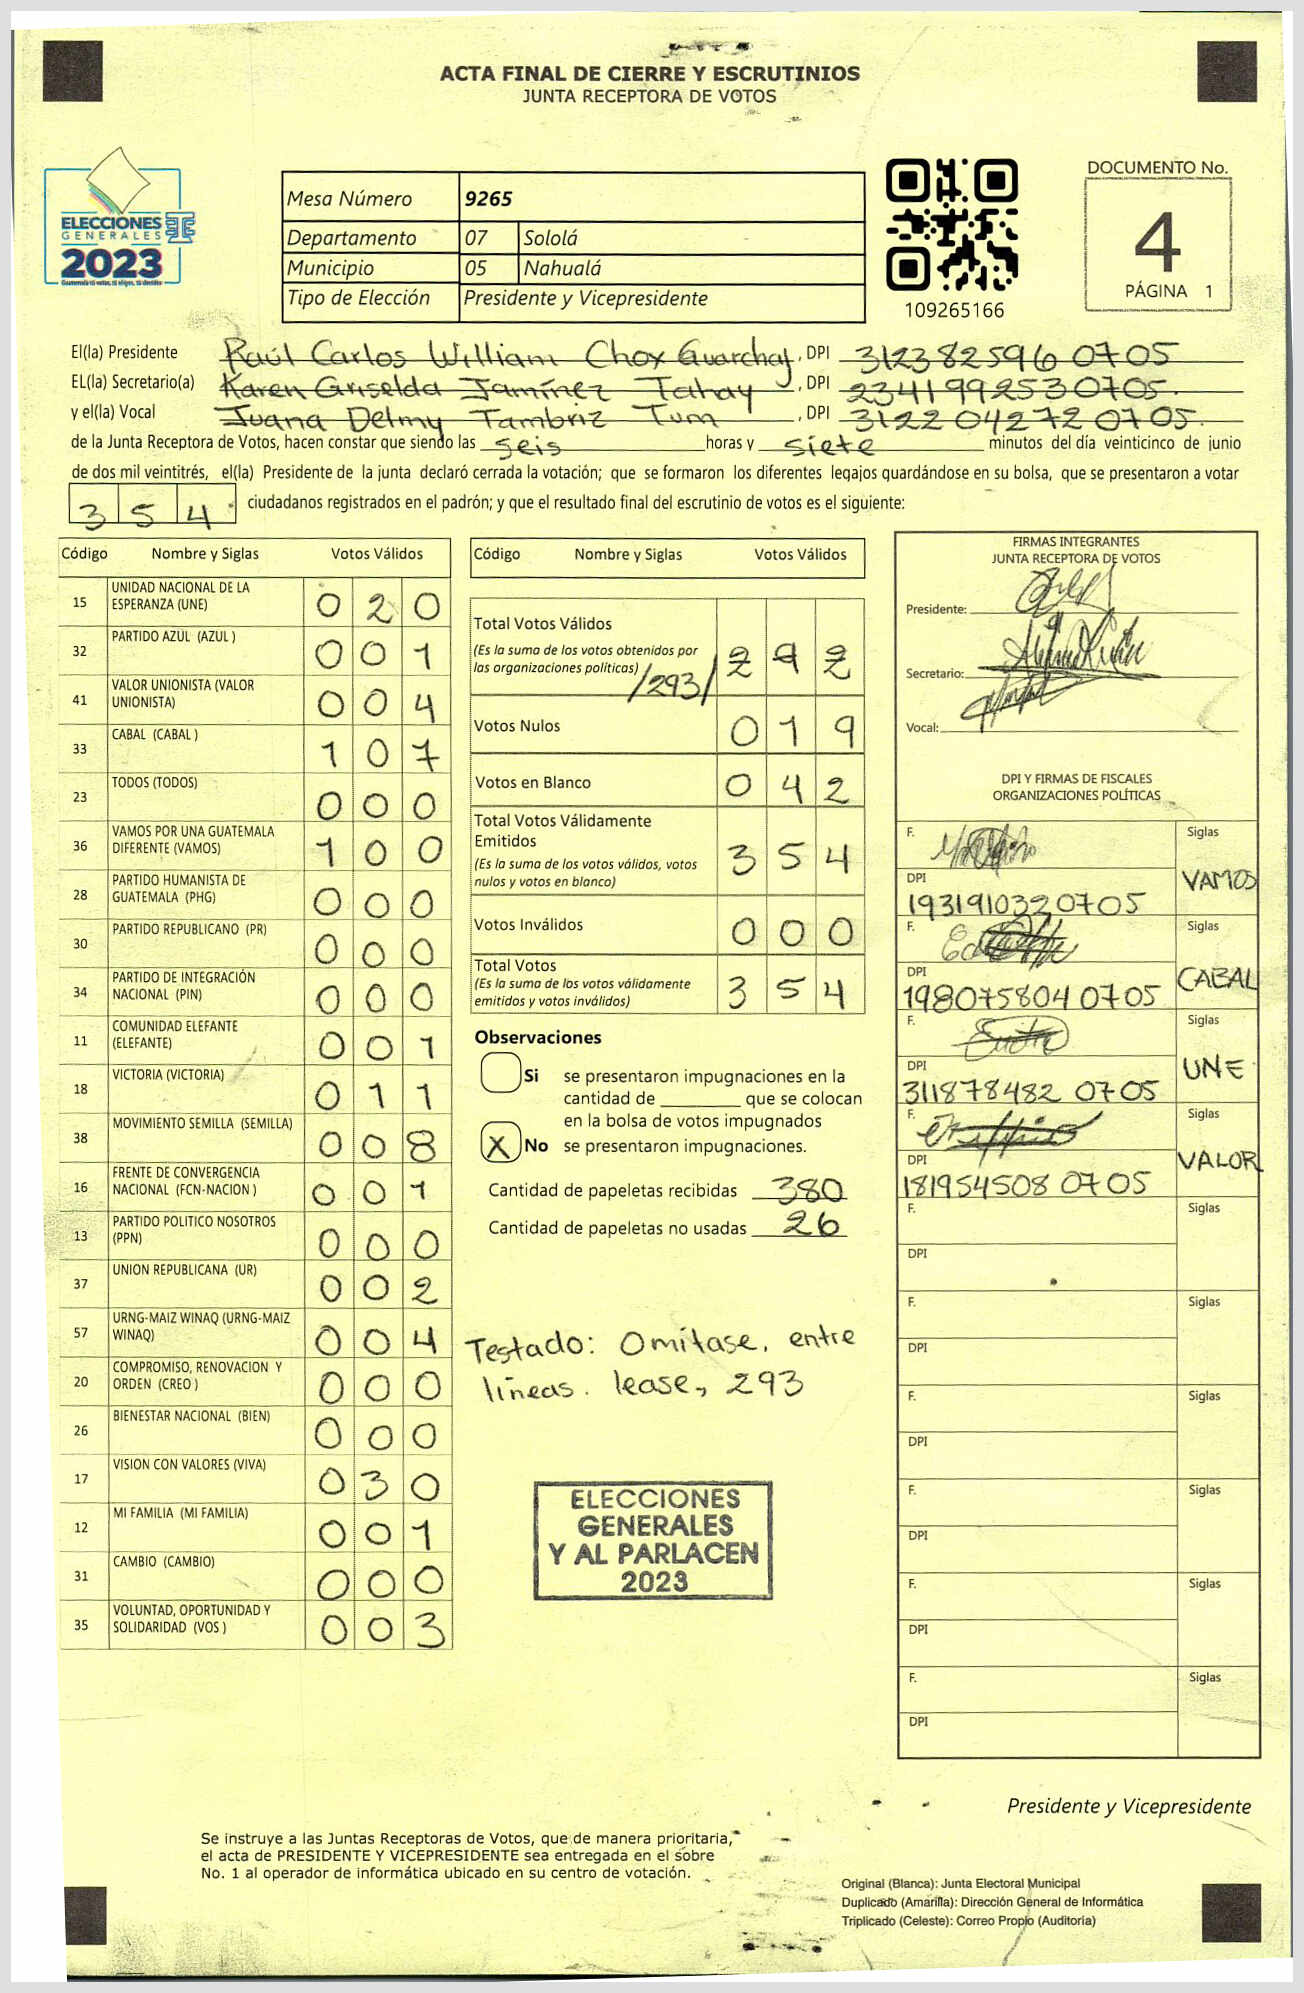 ACTA FINAL DE CIERRE Y ESCRUTINIOS
JUNTA RECEPTORA DE VOTOS
ELECCIONES
GENERALES
2023
Mesa Número 9265
Departamento 07 Sololá
Municipio 05 Nahualá
Tipo de Elección Presidente y Vicepresidente
109265166
DOCUMENTO No.
4
PÁGINA 1
El(la) Presidente Raúl Carlos William Chox Guarchaj, DPI 3123 82596 0705
EL(la) Secretario(a) Karen Griselda Jamínez Tahay, DPI 2341 99253 0705
y el(la) Vocal Juana Delmy Tambriz Tum, DPI 3122 04272 0705.
de la Junta Receptora de Votos, hacen constar que siendo las seis horas y siete minutos del día veinticinco de junio
de dos mil veintitrés, el(la) Presidente de la junta declaró cerrada la votación; que se formaron los diferentes legajos guardándose en su bolsa, que se presentaron a votar
354 ciudadanos registrados en el padrón; y que el resultado final del escrutinio de votos es el siguiente:
Código Nombre y Siglas Votos Válidos
15 UNIDAD NACIONAL DE LA ESPERANZA (UNE) 0 2 0
32 PARTIDO AZUL (AZUL ) 0 0 1
41 VALOR UNIONISTA (VALOR UNIONISTA) 0 0 4
33 CABAL (CABAL ) 1 0 7
23 TODOS (TODOS) 0 0 0
36 VAMOS POR UNA GUATEMALA DIFERENTE (VAMOS) 1 0 0
28 PARTIDO HUMANISTA DE GUATEMALA (PHG) 0 0 0
30 PARTIDO REPUBLICANO (PR) 0 0 0
34 PARTIDO DE INTEGRACIÓN NACIONAL (PIN) 0 0 0
11 COMUNIDAD ELEFANTE (ELEFANTE) 0 0 1
18 VICTORIA (VICTORIA) 0 1 1
38 MOVIMIENTO SEMILLA (SEMILLA) 0 0 8
16 FRENTE DE CONVERGENCIA NACIONAL (FCN-NACION ) 0 0 1
13 PARTIDO POLITICO NOSOTROS (PPN) 0 0 0
37 UNION REPUBLICANA (UR) 0 0 2
57 URNG-MAIZ WINAQ (URNG-MAIZ WINAQ) 0 0 4
20 COMPROMISO, RENOVACION Y ORDEN (CREO ) 0 0 0
26 BIENESTAR NACIONAL (BIEN) 0 0 0
17 VISION CON VALORES (VIVA) 0 3 0
12 MI FAMILIA (MI FAMILIA) 0 0 1
31 CAMBIO (CAMBIO) 0 0 0
35 VOLUNTAD, OPORTUNIDAD Y SOLIDARIDAD (VOS ) 0 0 3
Código Nombre y Siglas Votos Válidos
Total Votos Válidos
(Es la suma de los votos obtenidos por
las organizaciones políticas) /293/ 2 9 2
Votos Nulos 0 1 9
Votos en Blanco 0 4 2
Total Votos Válidamente
Emitidos
(Es la suma de los votos válidos, votos
nulos y votos en blanco) 3 5 4
Votos Inválidos 0 0 0
Total Votos
(Es la suma de los votos válidamente
emitidos y votos inválidos) 3 5 4
Observaciones
Si se presentaron impugnaciones en la
cantidad de ________ que se colocan
en la bolsa de votos impugnados
X No se presentaron impugnaciones.
Cantidad de papeletas recibidas 380
Cantidad de papeletas no usadas 26
Testado: Omítase, entre
líneas. lease, 293
ELECCIONES
GENERALES
Y AL PARLACEN
2023
FIRMAS INTEGRANTES
JUNTA RECEPTORA DE VOTOS
Presidente:
Secretario:
Vocal:
DPI Y FIRMAS DE FISCALES
ORGANIZACIONES POLÍTICAS
F. Siglas
VAMOS
DPI
193191032 0705
F. Siglas
CABAL
DPI
198075804 0705
F. Siglas
UNE
DPI
311878482 0705
F. Siglas
VALOR
DPI
181954508 0705
F. Siglas
DPI
F. Siglas
DPI
F. Siglas
DPI
F. Siglas
DPI
F. Siglas
DPI
F. Siglas
DPI
Presidente y Vicepresidente
Se instruye a las Juntas Receptoras de Votos, que de manera prioritaria,
el acta de PRESIDENTE Y VICEPRESIDENTE sea entregada en el sobre
No. 1 al operador de informática ubicado en su centro de votación.
Original (Blanca): Junta Electoral Municipal
Duplicado (Amarilla): Dirección General de Informática
Triplicado (Celeste): Correo Propio (Auditoría)